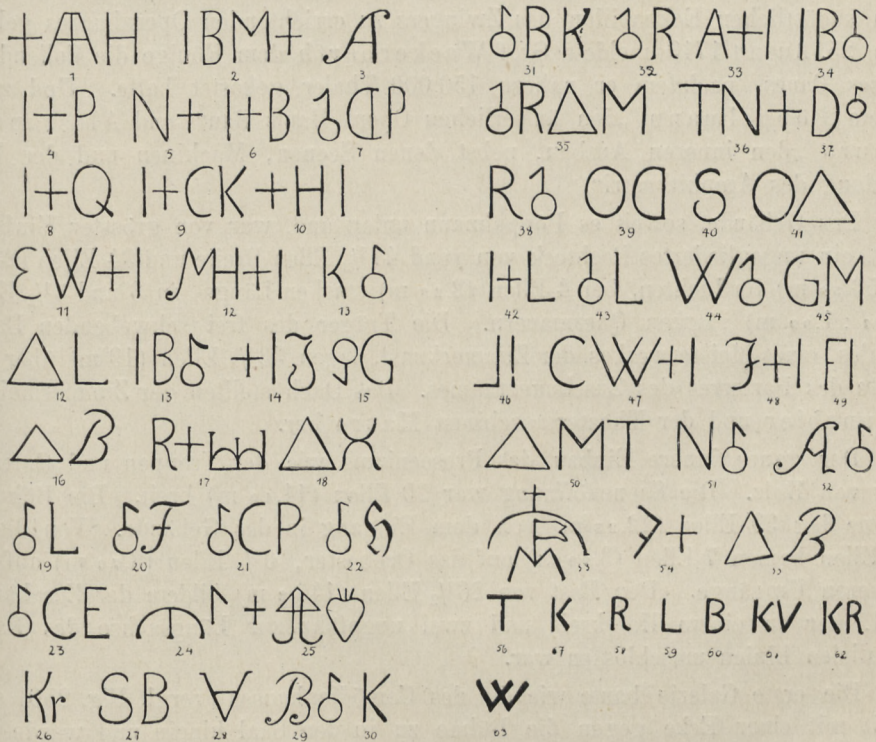 +AH IBM+ A
1 2 3
I+P N+I+B CP
4 5 6 7
I+Q I+CK+HI
8 9 10
EW+ MH+ IK
11 12 13
L IB +I G
12 13 14 15
B R+
16 17 18
L F CP H
19 20 21 22
CE +
23 24 25
Kr SB B K
26 27 28 29 30
BK R A+ IB
31 32 33 34
R M TN+D
35 36 37
R OD S O
38 39 40 41
+ L W GM
42 43 44 45
CW+I F+I FI
46 47 48 49
MT N A
50 51 52
+ B
53 54 55
T K R L B KV KR
56 57 58 59 60 61 62
W
63